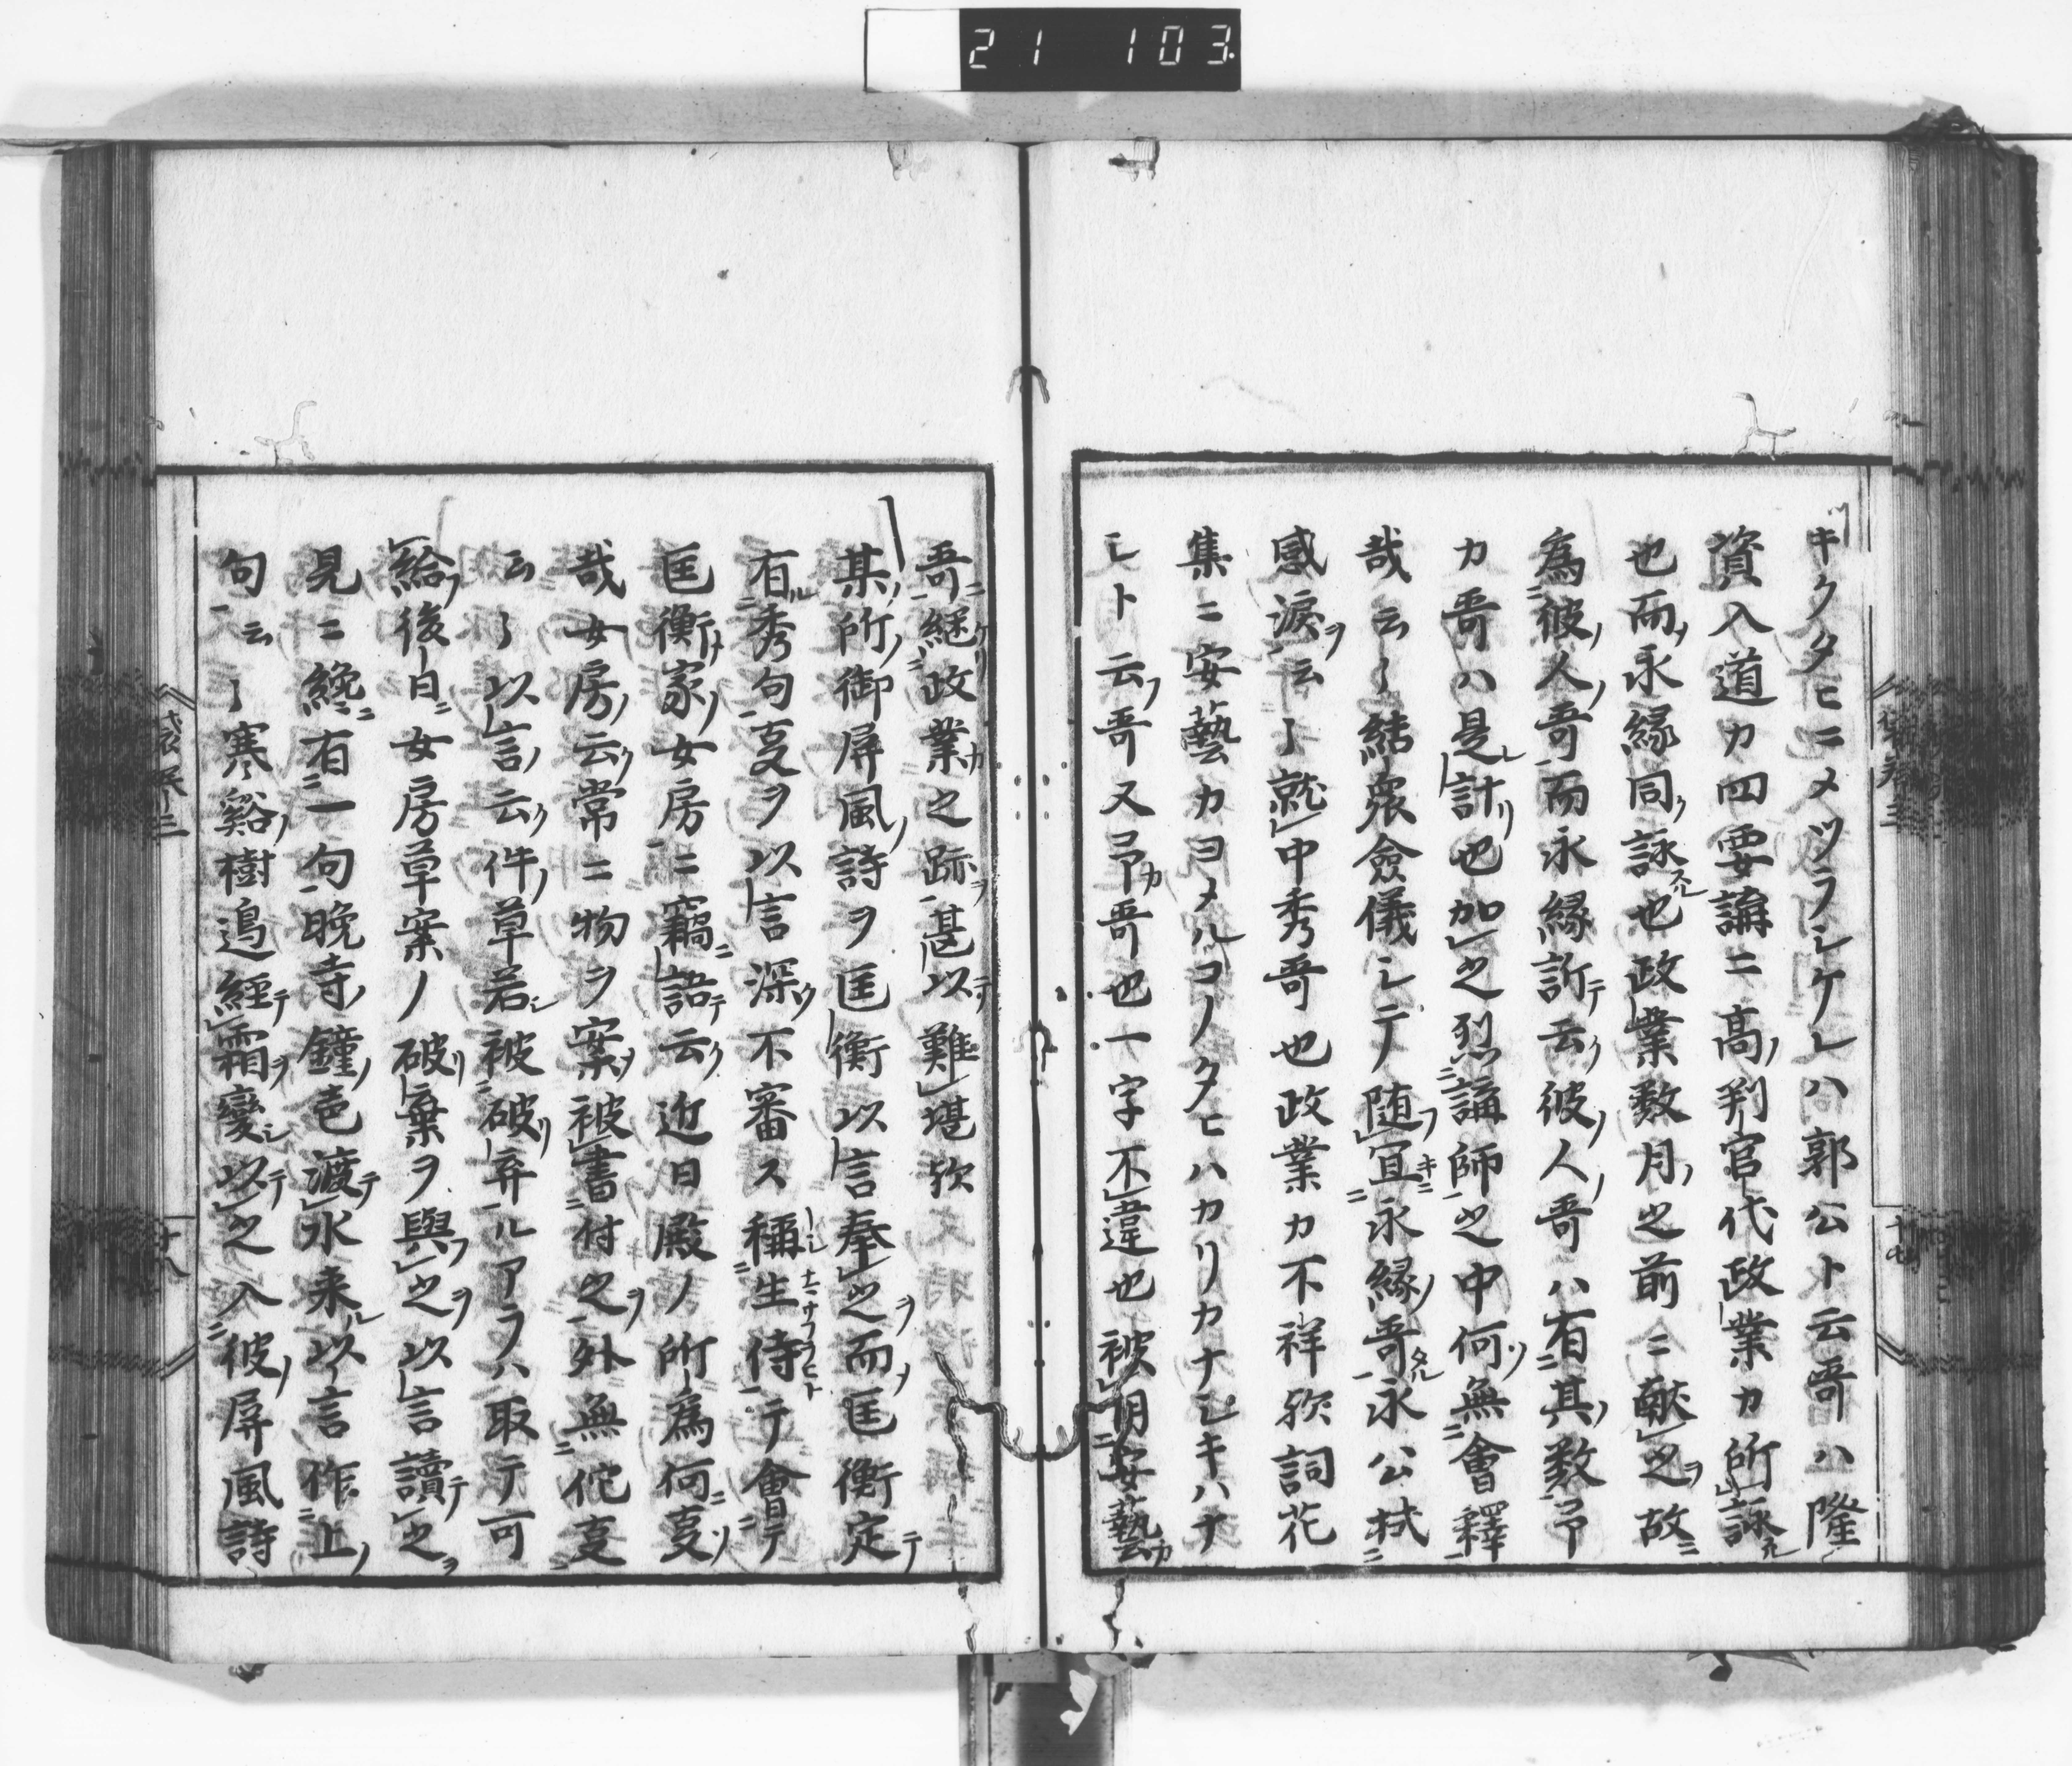 21 103
キクタヒニメツラシケレハ郭公ト云哥ハ隆
資入道カ四要講ニ高判官代政業カ所詠
也而永縁同詠也政業数月之前ニ献之故
為彼人哥而永縁訴云彼人哥ハ有其数予
カ哥ハ是計也加之烈講師之中何無會釋
哉云々結衆僉儀シテ随宜永縁哥永公拭
感涙云々就中秀哥也政業カ不祥欤詞花
集ニ安藝カヨメルコノタヒハカリカナシキハナ
シト云哥又予哥也一字不違也被用安藝
哥継政業之跡甚以難堪欤
某所御屏風詩ヲ匡衡以言奉之而匡衡定
有秀句㕝ヲ以言深不審ス稱生侍テ會テ
匡衡家女房ニ竊語云近日殿ノ所為何㕝
哉女房云常ニ物ヲ案被書付之外無佗㕝
云々以言云件草若被破弃ルアラハ取テ可
給後日女房草案ノ破棄ヲ與之以言讀之
見ニ纔有一句晩寺鐘色渡水来以言作上
句云々寒谿樹邉經霜變以之入彼屏風詩